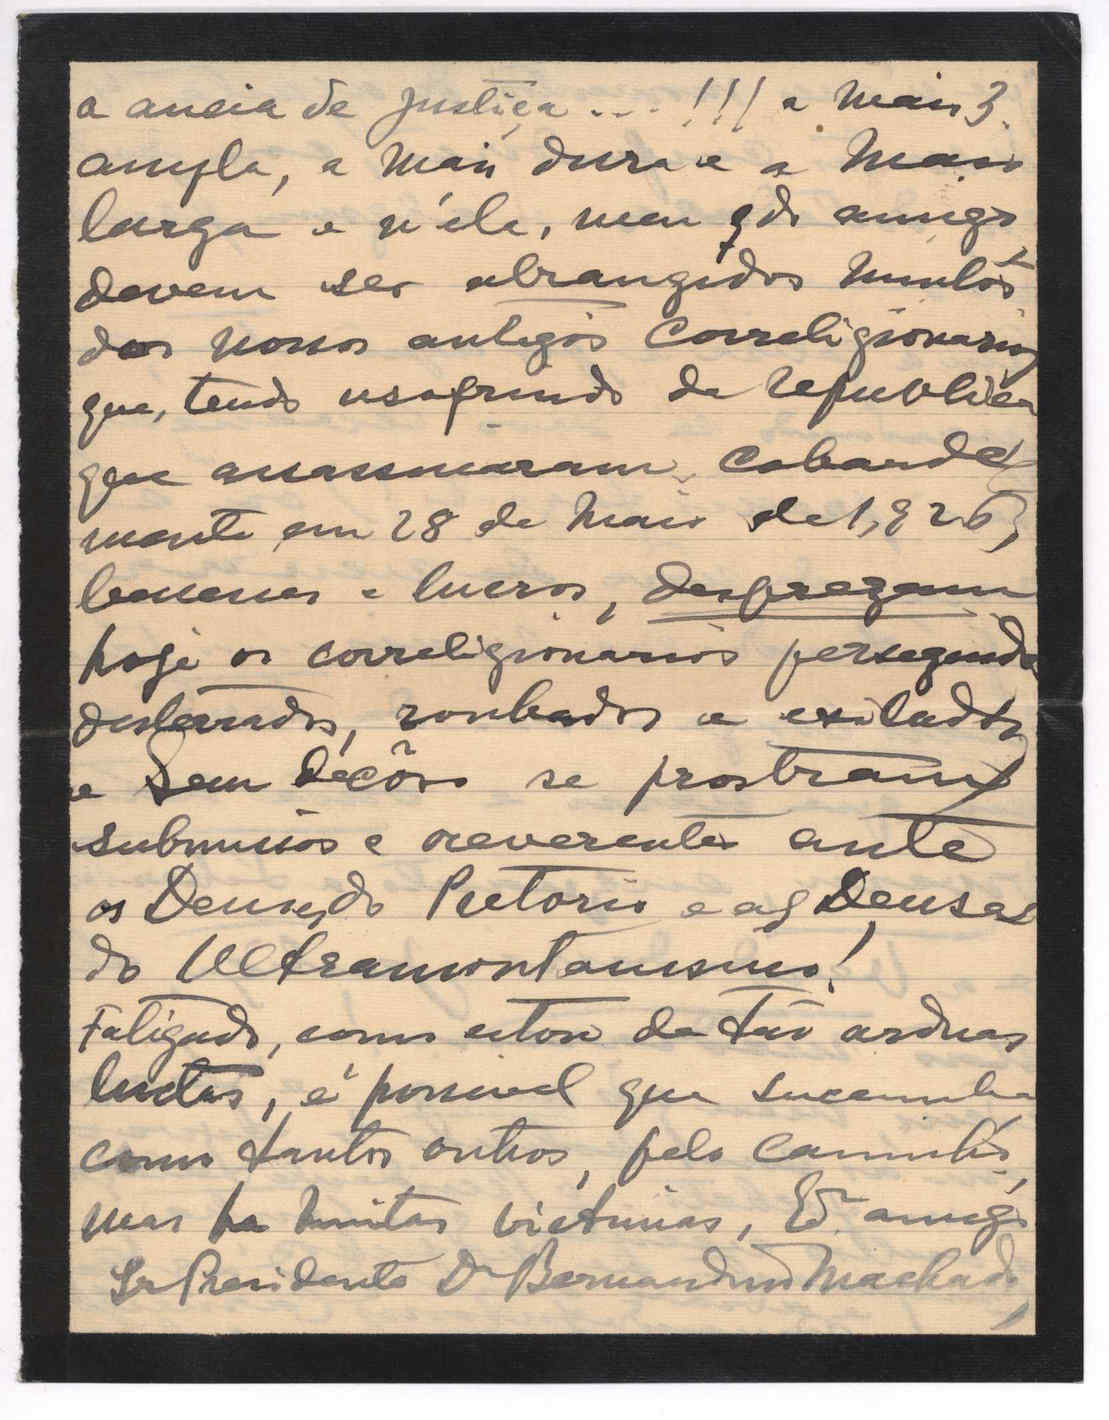 a aneia de justiça ... !!! a mais 3.
ampla, a mais dura e a mais
larga e n'éla, meu qdo amigo
devem ser abrangidos muitos
dos nossos antigos correligionarios
que, tendo usofruido da republica
que assassinaram, cobarde
mente em 28 de Maio de 1,926,
benesses e lucros, desprezam
hoje os correligionarios perseguidos
desterrados, roubados e exilados
e sem decôro se prostram
submissos e reverentes ante
os Deuses do Pretorio e as Deusas
do Ultramontanismo!
Fatigado, como estou de tão arduas
luctas, é possivel que sucumba
como tantos outros, pelo caminho,
mas ha muitas victimas, Edo amigo
Sr Presidente Dr Bernardino Machado,